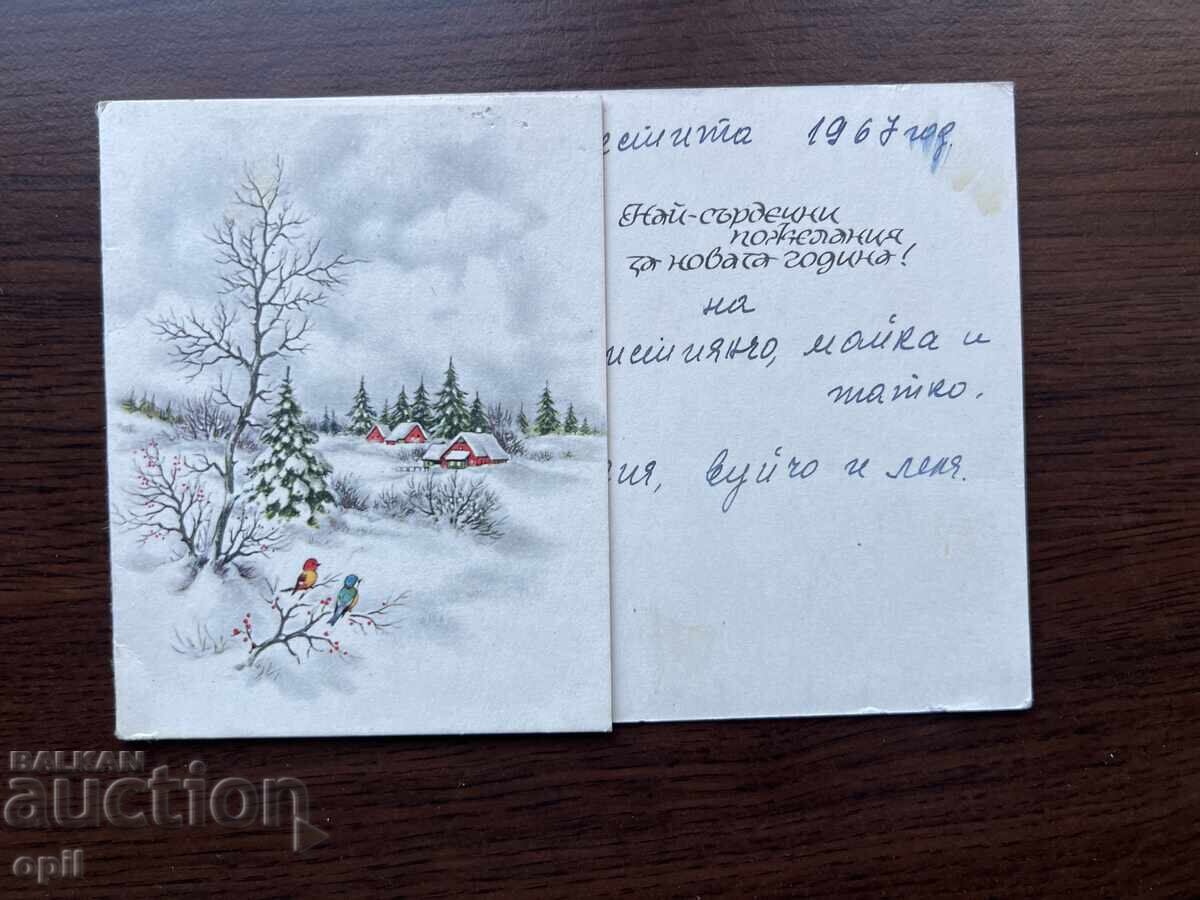 естита 1967 год.
Най-сърдечни
пожелания
за новата година!
на
истиянчо, майка и
татко.
вуйчо и леля.
BALKAN
auction
opil